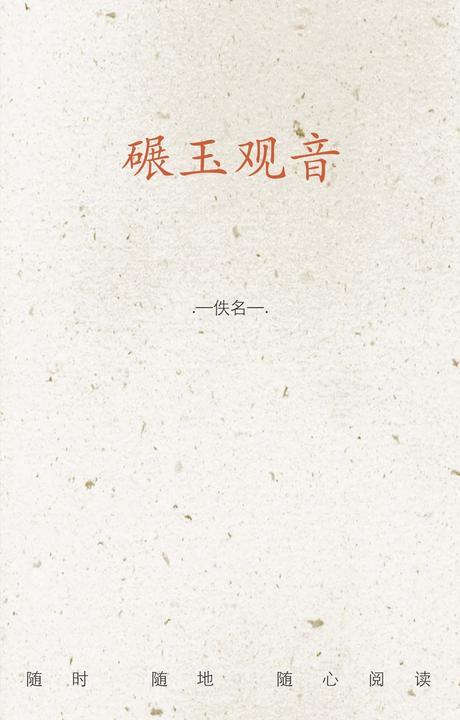 碾玉观音
.—佚名—.
随时 随地 随心阅读